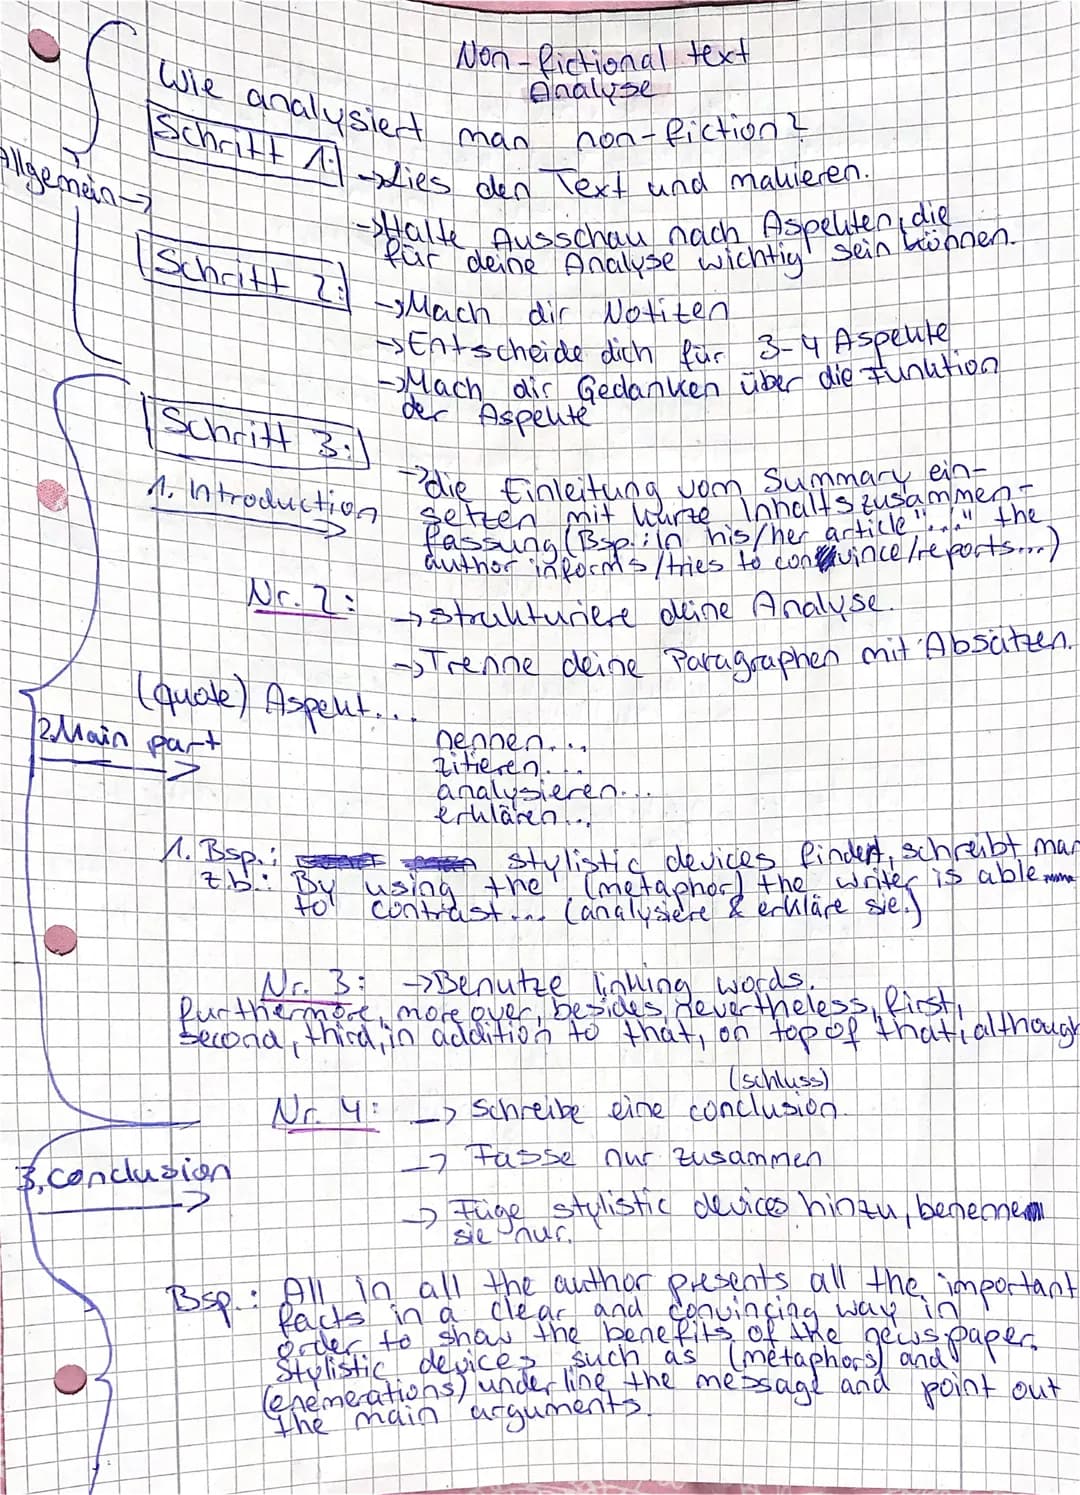 Non-fictional text
Analyse
Wie analysiert man non-fiction?
Allgemein→
Schritt 1: →Lies den Text und makieren.
→Halte Ausschau nach Aspekten, die
für deine Analyse wichtig sein können.
Schritt 2: →Mach dir Notizen
→Entscheide dich für 3-4 Aspekte
→Mach dir Gedanken über die Funktion
der Aspekte
Schritt 3:
1. Introduction →die Einleitung vom Summary ein-
setzen mit kurze Inhaltszusammen-
fassung (Bsp.: in his/her article "..." the
author informs/tries to convince/reports...)
Nr. 2: →strukturiere deine Analyse.
→Trenne deine Paragraphen mit Absätzen.
(quote) Aspekt...
2.Main part
nennen...
zitieren...
analysieren...
erklären...
1. Bsp.: stylistic devices findest, schreibt man
z.b.: By using the (metaphor) the writer is able
to contrast... (analysiere & erkläre sie.)
Nr. 3: →Benutze linking words.
furthermore, more over, besides, nevertheless, first,
second, third, in addition to that, on top of that, although
(schluss)
Nr. 4: → schreibe eine conclusion.
3. conclusion
→ Fasse nur zusammen
→ Füge stylistic devices hinzu, benenne
sie nur.
Bsp.: All in all the author presents all the important
facts in a clear and convincing way in
order to show the benefits of the newspaper.
Stylistic devices such as (metaphors) and
(enemerations) underline the message and point out
the main arguments.